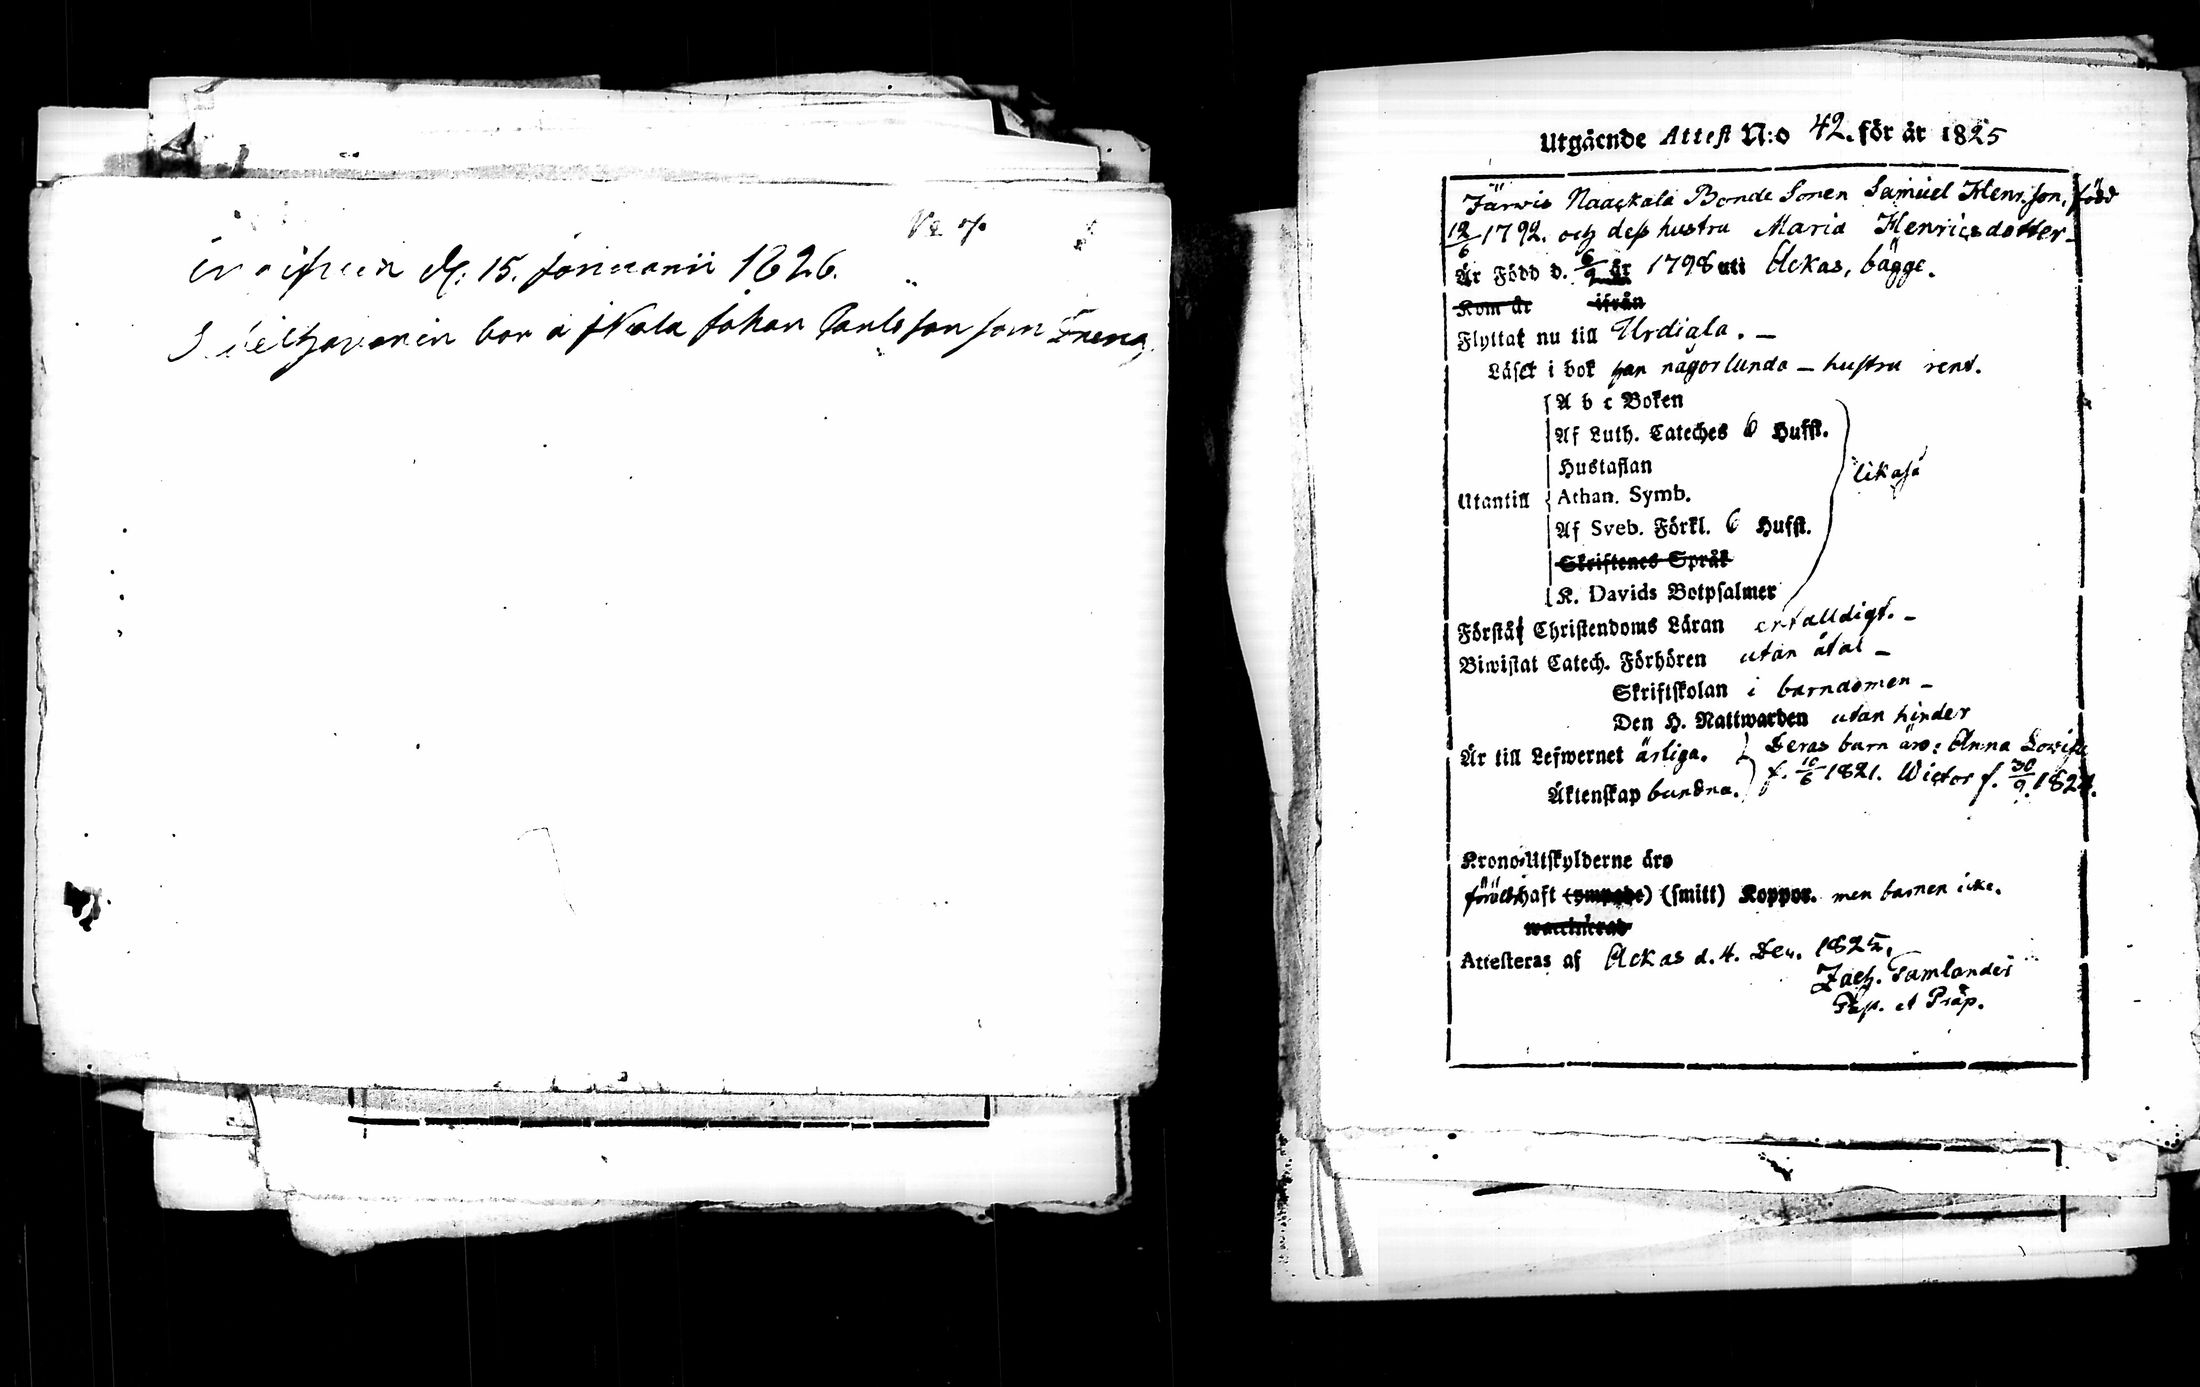 No 7.
d. 15. Januarii 1826.
bor å Johan Carlsson som
Utgående Attest N:o 42. för år 1825
Järwis Naaskala Bonde Sonen Samuel Henr.son, född
12/6 1792. och dess hustru Maria Henricsdotter
Är Född d. 6/9 år 1798 uti Ackas, bägge.
Kom år ifrån
Flyttat nu till Urdiala. –
Läser i bok han någorlunda – hustru rent.
A b c Boken
Af Luth. Cateches 6 Hufst.
Hustaflan
likaså
Utantill Athan. Symb.
Af Sveb. Förkl. 6 Hufst.
Skriftenes Språk
K. Davids Botpsalmer
Förstår Christendoms Läran enfalldigt. –
Biwistat Catech. Förhören utan åtal –
Skriftskolan i barndomen –
Den H. Nattwarden utan hinder
Är till Lefwernet ärliga. Deras barn äro: Anna Lowisa
f. 10/6 1821. Wictor f. 30/9 1824.
Äktenskap bundna.
Krono-Utskylderne äro
haft (ympade) (smitt) Koppor. men barnen icke.
waccinerad
Attesteras af Ackas d. 4. Dec. 1825.
Zach. Tamlander
Past. et Præp.